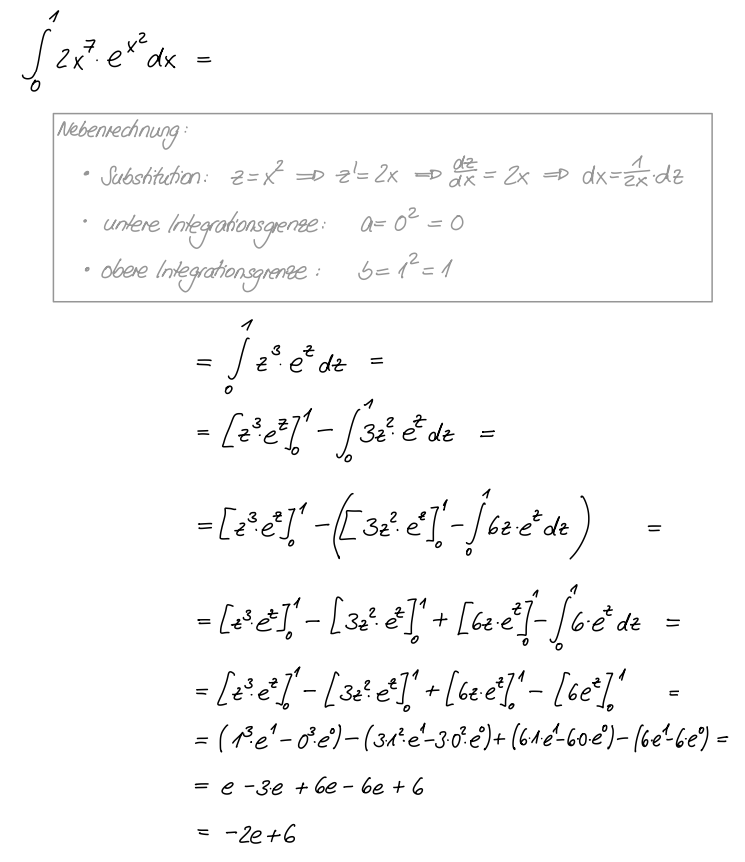 ∫₀¹ 2x⁷·e^(x²) dx =
Nebenrechnung:
• Substitution: z=x² ⇒ z'=2x ⇒ dz/dx = 2x ⇒ dx=1/(2x)·dz
• untere Integrationsgrenze: a=0²=0
• obere Integrationsgrenze: b=1²=1
= ∫₀¹ z³·e^z dz =
= [z³·e^z]₀¹ − ∫₀¹ 3z²·e^z dz =
= [z³·e^z]₀¹ − ([3z²·e^z]₀¹ − ∫₀¹ 6z·e^z dz) =
= [z³·e^z]₀¹ − [3z²·e^z]₀¹ + [6z·e^z]₀¹ − ∫₀¹ 6·e^z dz =
= [z³·e^z]₀¹ − [3z²·e^z]₀¹ + [6z·e^z]₀¹ − [6e^z]₀¹ =
= (1³·e¹ − 0³·e⁰) − (3·1²·e¹ − 3·0²·e⁰) + (6·1·e¹ − 6·0·e⁰) − (6·e¹ − 6·e⁰) =
= e − 3·e + 6e − 6e + 6
= −2e + 6